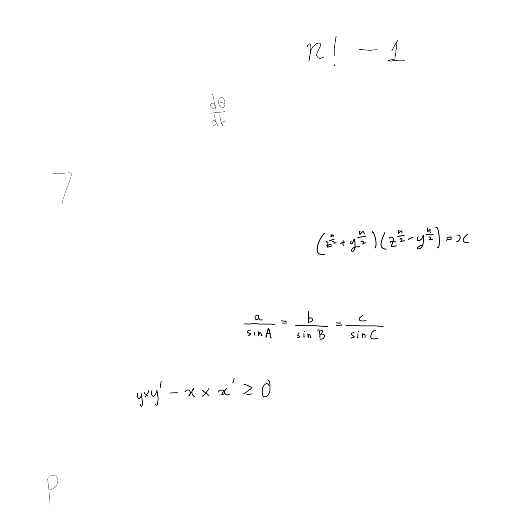 n! − 1
dθ/dt
7
(z^{n/2} + y^{n/2})(z^{n/2} − y^{n/2}) = x
a/sin A = b/sin B = c/sin C
y×y′ − x × x′ ≥ 0
p